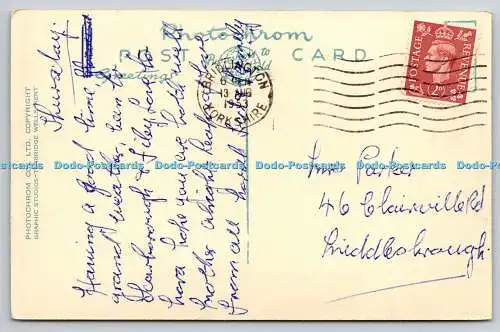 Photochrom
POST CARD
Greetings
PHOTOCHROM CO. LTD. COPYRIGHT
GRAPHIC STUDIOS-TUNBRIDGE WELLS, KENT
BRIDLINGTON
13 AUG
1953
YORKSHIRE
POSTAGE
REVENUE
Thursday.
Having a good time
grand weather, been to
Scarborough & Filey
here, hope you are both well
mother
from all
Mrs Parker
46 Clairville Rd
Middlesbrough
Dodo-Postcards Dodo-Postcards Dodo-Postcards Dodo-Postcards Dodo-Postcards